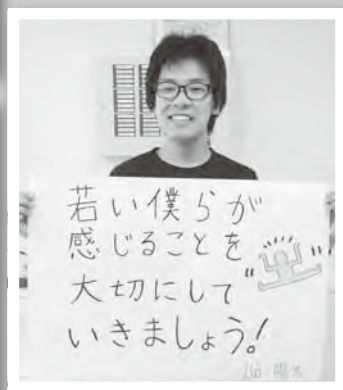 若い僕らが
感じることを
大切にして
いきましょう!